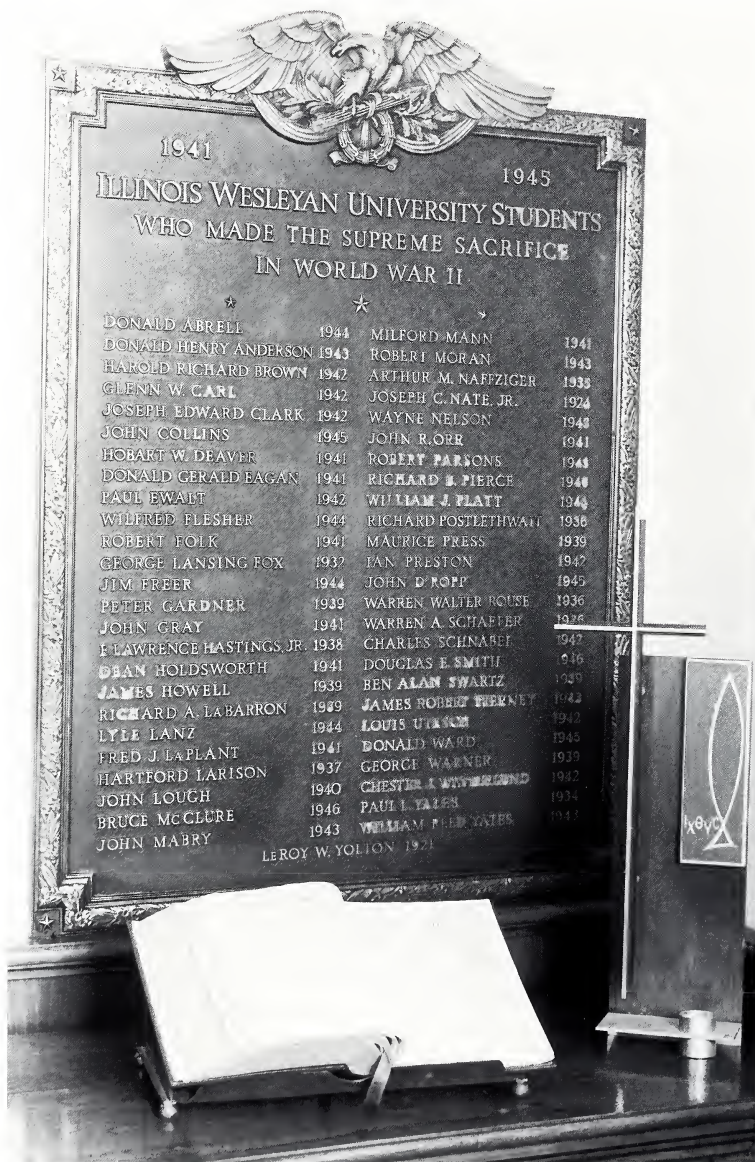 1941
1945
ILLINOIS WESLEYAN UNIVERSITY STUDENTS
WHO MADE THE SUPREME SACRIFICE
IN WORLD WAR II
DONALD ABRELL 1944
DONALD HENRY ANDERSON 1943
HAROLD RICHARD BROWN 1942
GLENN W. CARL 1942
JOSEPH EDWARD CLARK 1942
JOHN COLLINS 1945
HOBART W. DEAVER 1941
DONALD GERALD EAGAN 1941
PAUL EWALT 1942
WILFRED FLESHER 1944
ROBERT FOLK 1941
GEORGE LANSING FOX 1932
JIM FREER 1944
PETER GARDNER 1939
JOHN GRAY 1941
LAWRENCE HASTINGS, JR. 1938
DEAN HOLDSWORTH 1941
JAMES HOWELL 1939
RICHARD A. LABARRON 1939
LYLE LANZ 1944
FRED J. LAPLANT 1941
HARTFORD LARISON 1937
JOHN LOUGH 1940
BRUCE MCCLURE 1946
JOHN MABRY 1943
MILFORD MANN 1941
ROBERT MORAN 1943
ARTHUR M. NAFFZIGER
JOSEPH C. NATE, JR.
WAYNE NELSON
JOHN R. ORR 1941
ROBERT PARSONS
RICHARD PIERCE
WILLIAM J. PLATT
RICHARD POSTLETHWAIT
MAURICE PRESS 1939
IAN PRESTON 1942
JOHN D'ROPP 1945
WARREN WALTER ROUSE 1936
WARREN A. SCHAEFER
CHARLES SCHNABEL 1942
DOUGLAS E. SMITH
BEN ALAN SWARTZ
JAMES ROBERT TIERNEY
LOUIS 1942
DONALD WARD
GEORGE WARNER 1939
CHESTER
PAUL L. YATES 1934
WILLIAM REED YATES
LEROY W. YOLTON 1921
ΙΧΘΥϹ